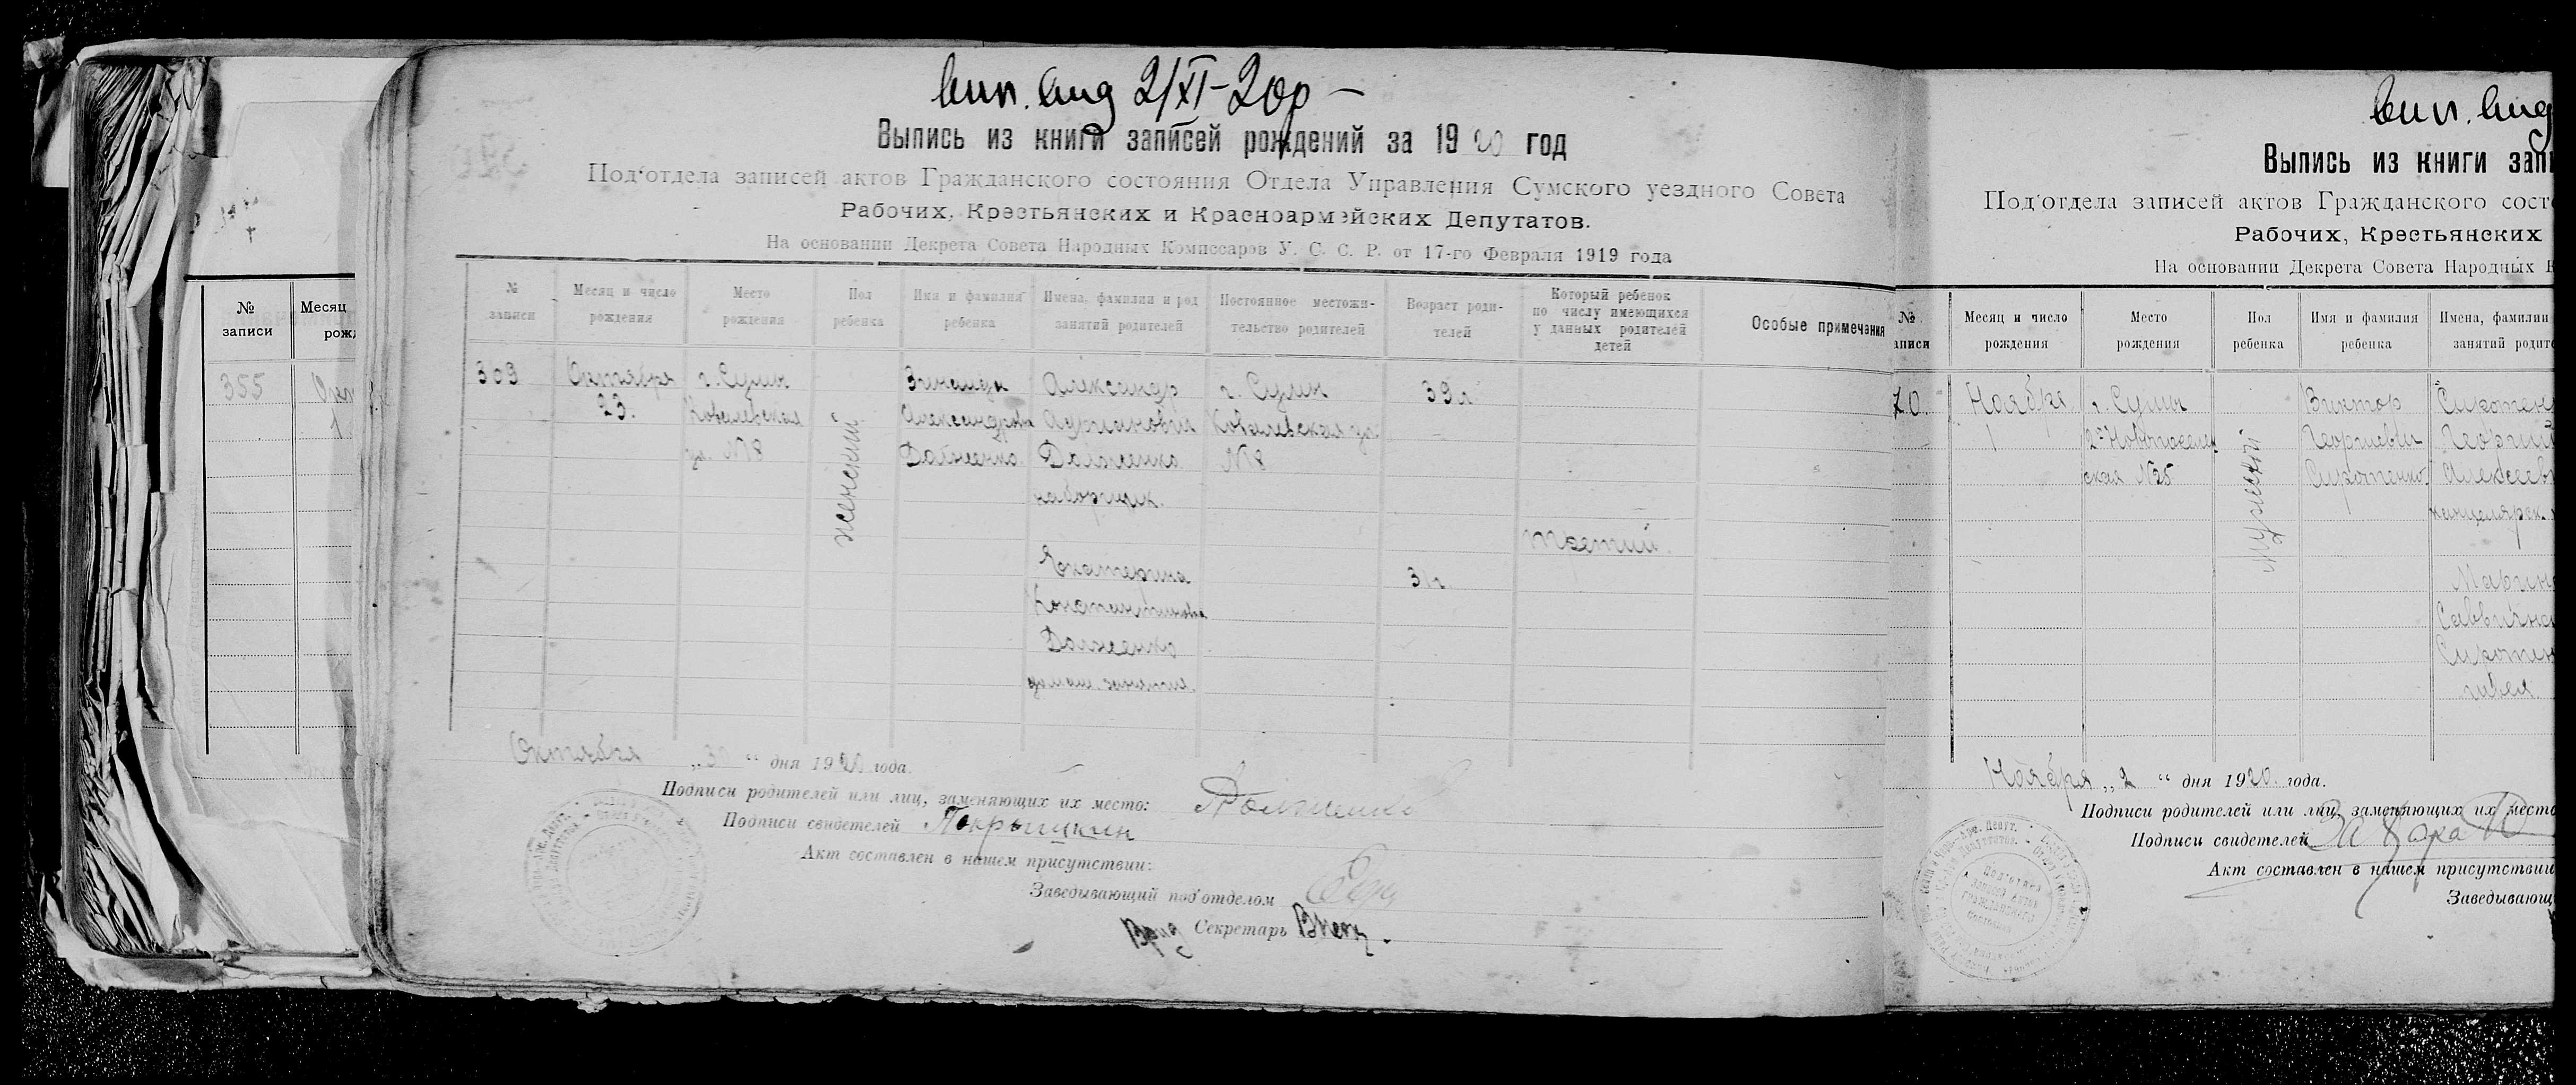 №
записи
Месяц
рож
355
1
вип. вид 2/XI-20р —
Выпись из книги записей рождений за 1920 год
Под'отдела записей актов Гражданского состояния Отдела Управления Сумского уездного Совета
Рабочих, Крестьянских и Красноармейских Депутатов.
На основании Декрета Совета Народных Комиссаров У. С. С. Р. от 17-го Февраля 1919 года
№
записи
Месяц и число
рождения
Место
рождения
Пол
ребенка
Имя и фамилия
ребенка
Имена, фамилии и род
занятий родителей
Постоянное местожи-
тельство родителей
Возраст роди-
телей
Который ребенок
по числу имеющихся
у данных родителей
детей
Особые примечания
309
Октября
23.
г. Сумы
Ковалевская
ул. №8
женский
Зинаида
Александровна
Долженко
Александр
Адрианович
Долженко
наборщик.
Екатерина
Константиновна
Долженко
домаш. занятия.
г. Сумы
Ковалевская ул.
№8
39 л.
31 г.
третий.
Октября „30“ дня 1920 года.
Подписи родителей или лиц, заменяющих их место: Долженко
Подписи свидетелей Покрышкин
Акт составлен в нашем присутствии:
Заведывающий под'отделом
Врид Секретарь
вип. вид
Выпись из книги зап
Под'отдела записей актов Гражданского сост
Рабочих, Крестьянских
На основании Декрета Совета Народных К
№
аписи
Месяц и число
рождения
Место
рождения
Пол
ребенка
Имя и фамилия
ребенка
Имена, фамилии
занятий родите
70.
Ноября
1
г. Сумы
2я Новоместен
ская №25
мужеский
Виктор
Георгиевич
Сиротенко
Сиротен
Георгий
Алексеев
канцелярск.
Марина
Саввична
Сиротен
швея
Ноября „2“ дня 1920. года.
Подписи родителей или лиц, заменяющих их место
Подписи свидетелей
Акт составлен в нашем присутствии
Заведывающ